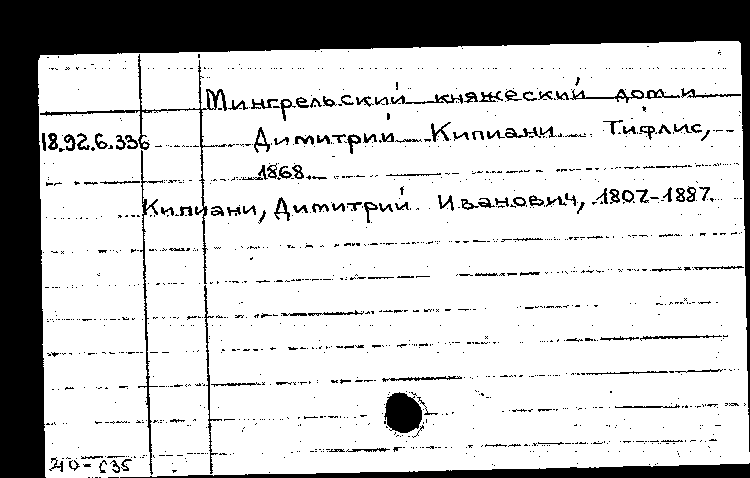 Мингрельский княжеский дом и
18.92.6.336 Димитрий Кипиани. Тифлис,
1868.
Кипиани, Димитрий Иванович, 1807-1887.